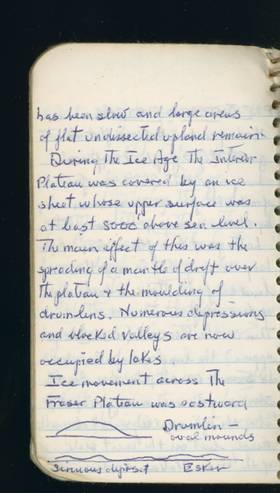 has been slow and large areas
of flat undissected upland remain.
During The Ice Age The Interior
Plateau was covered by an ice
sheet whose upper surface was
at least 5000 above sea level.
The main effect of this was the
spreading of a mantle of drift over
the plateau & the moulding of
drumlins. Numerous depressions
and blocked valleys are now
occupied by lakes.
Ice movement across The
Fraser Plateau was eastward
Drumlin -
oval mounds
Sinuous deposit Esker